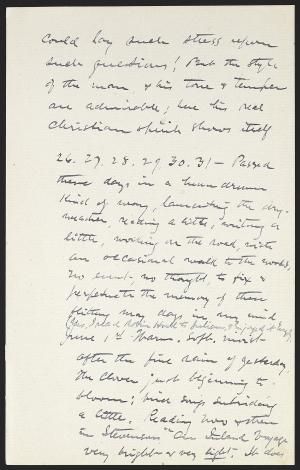 could lay such stress upon
such questions! But the style
of the man, & his tone & temper
are admirable; here his real
Christian spirit shows itself
26. 27. 28. 29. 30. 31 — Passed
these days in a humdrum
kind of way, lamenting the dry
weather, reading a little, writing a
little, working on the road, with
an occasional walk to the woods,
no event, no thought, to fix &
perpetuate the memory of these
flitting May days in my mind
June 1st Warm, soft, moist
after the fine rain of yesterday,
the clover just beginning to
bloom; bird songs subsiding
a little. Reading now & then
in Stevenson's "An Inland Voyage"
very bright & very light. It does